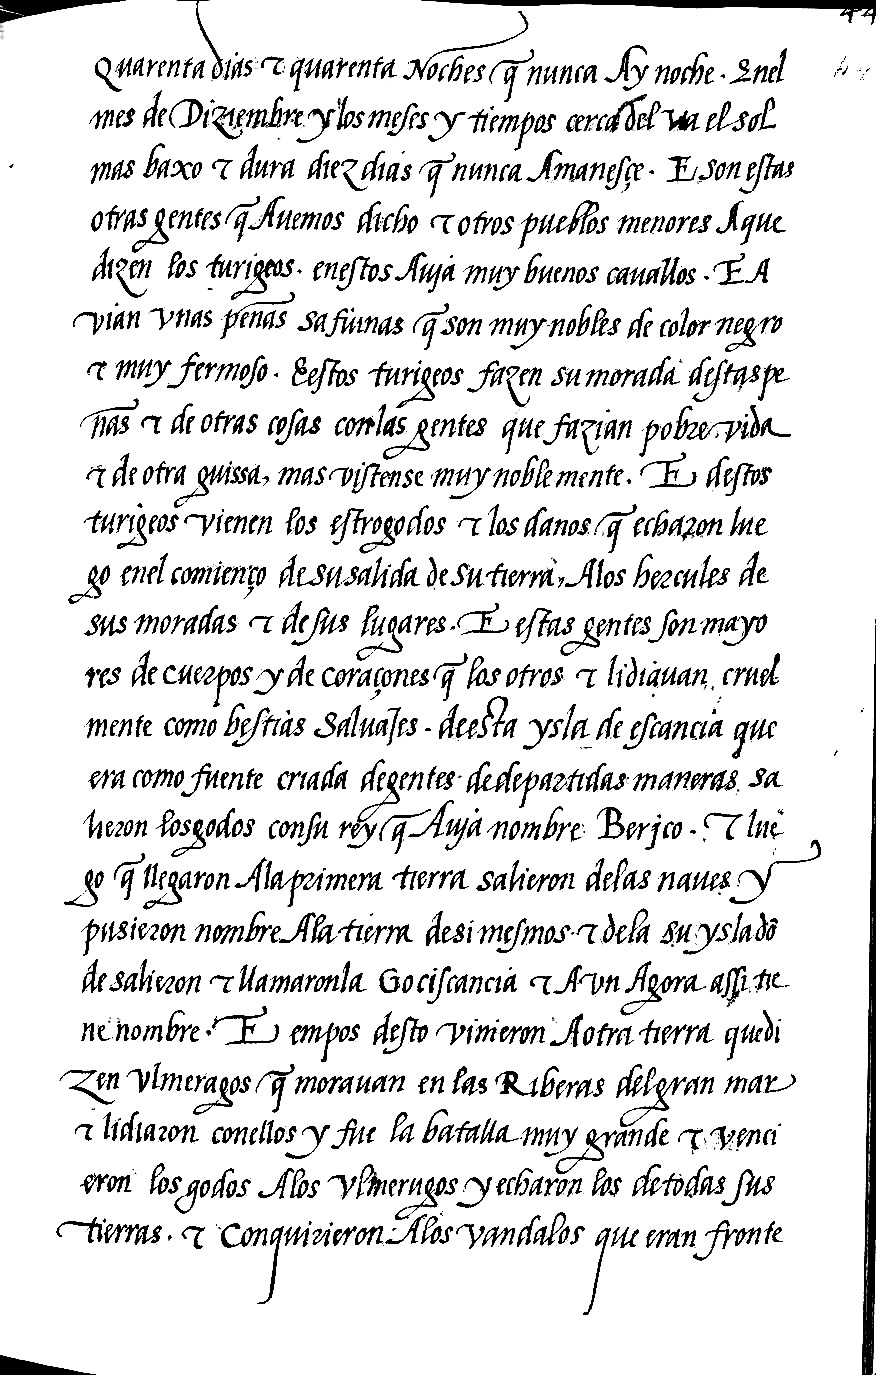 44
Quarenta dias τ quarenta Noches q̃ nunca Ay noche. Enel
mes de Diziembre y los meses y tiempos cerca del va el sol
mas baxo τ dura diez dias q̃ nunca Amanesçe. E son estas
otras gentes q̃ Auemos dicho τ otros pueblos menores A que
dizen los turigeos. enestos Auja muy buenos cauallos. E A
vian vnas peñas safirinas q̃ son muy nobles de color negro
τ muy fermoso. E estos turigeos fazen su morada destas pe
ñas τ de otras cosas con las gentes que fazian pobre vida
τ de otra guissa, mas vistense muy noble mente. E destos
turigeos vienen los estrogodos τ los danos q̃ echaron lue
go enel comienço de su salida de su tierra, Alos hercules de
sus moradas τ de sus lugares. E estas gentes son mayo
res de cuerpos y de coraçones q̃ los otros τ lidiauan cruel
mente como bestias saluajes. de esta ysla de escancia que
era como fuente criada de gentes de departidas maneras sa
lieron los godos con su rey q̃ Auja nombre Berjco. τ lue
go q̃ llegaron Ala primera tierra salieron delas naues y
pusieron nombre Ala tierra de si mesmos τ dela su ysla dõ
de salieron τ llamaronla Gociscancia τ Avn Agora assi tie
ne nombre. E empos desto vinieron A otra tierra que di
zen vlmeragos q̃ morauan en las Riberas del gran mar
τ lidiaron conellos y fue la batalla muy grande τ venci
eron los godos Alos vlmerugos y echaron los de todas sus
tierras. τ Conquirieron Alos vandalos que eran fronte